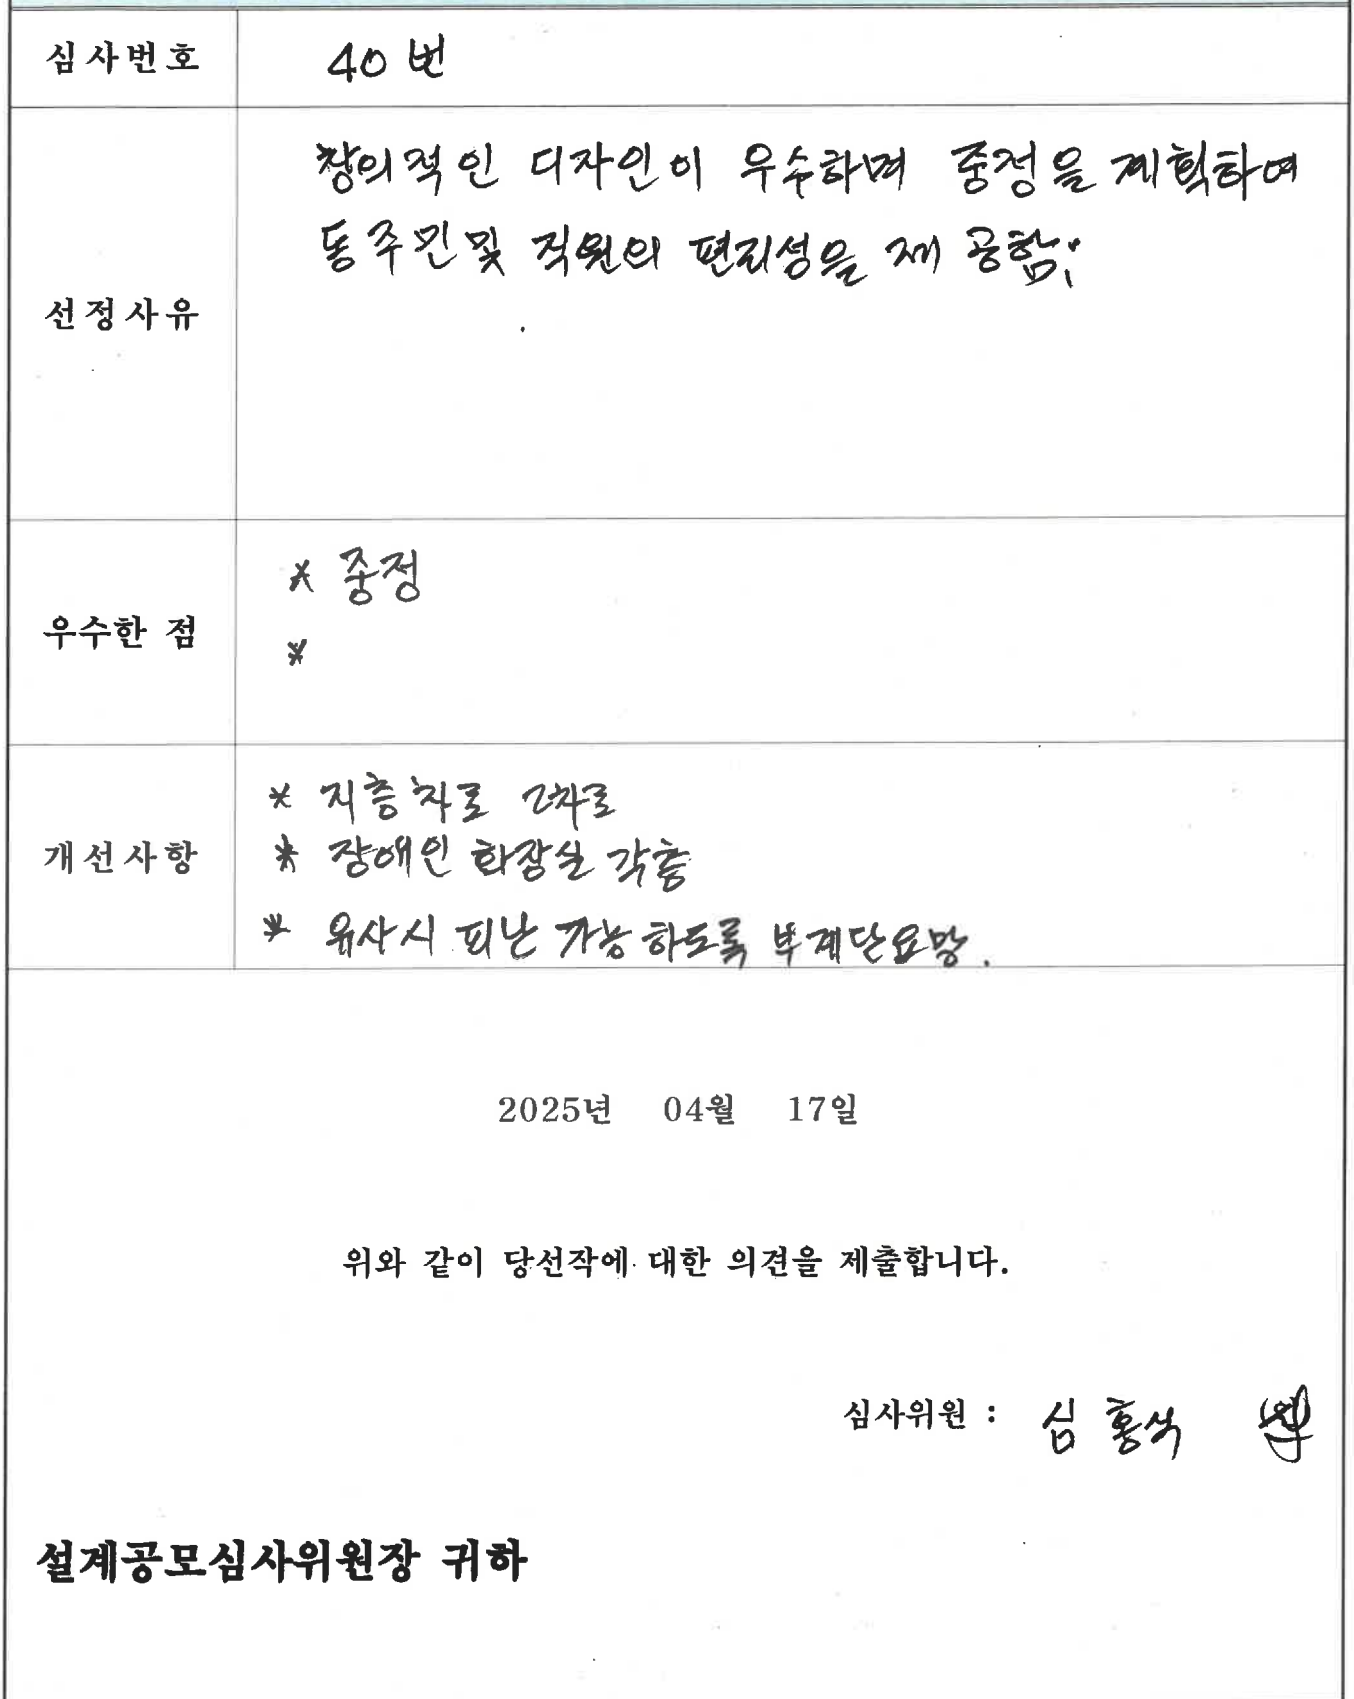 심사번호 40 번
창의적인 디자인이 우수하며 중정을 계획하여
동주민및 직원의 편리성을 제공함.
선정사유
* 중정
우수한 점
*
* 지층차로 2차로
개선사항 * 장애인 화장실 각층
* 유사시 피난 가능하도록 부계단요망.
2025년 04월 17일
위와 같이 당선작에 대한 의견을 제출합니다.
심사위원 : 심홍식
설계공모심사위원장 귀하